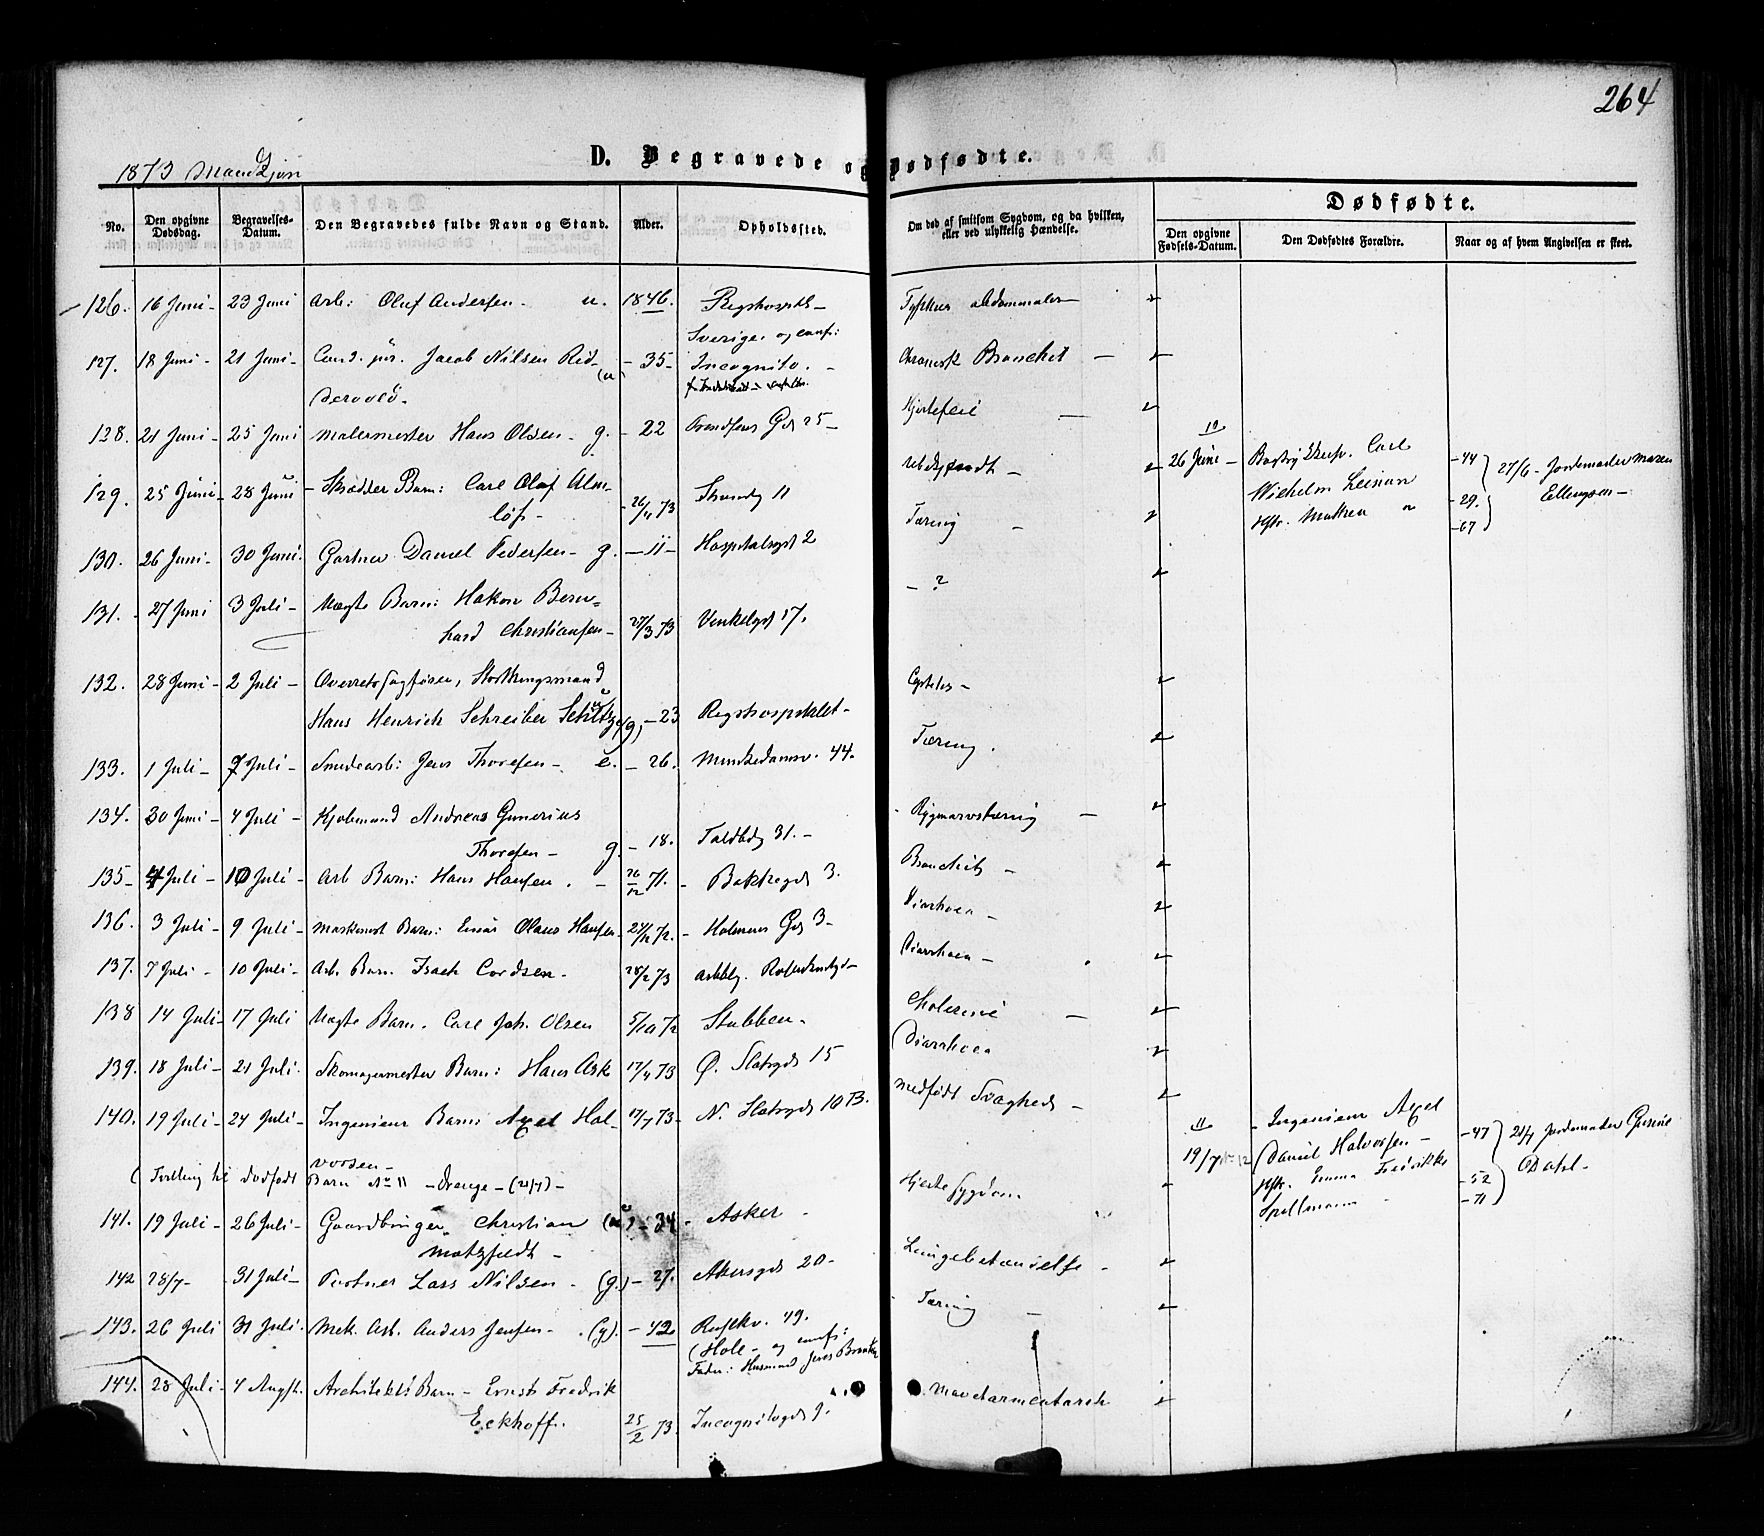 264
1873 Mandkjøn
D. Begravede og Dødfødte.
No. Den opgivne Dødsdag. Begravelses-Datum. Den Begravedes fulde Navn og Stand. Alder. Opholdssted. Om død af smitsom Sygdom, og da hvilken, eller ved ulykkelig Hændelse. Dødfødte.
Den opgivne Fødsels-Datum. Den Dødfødtes Forældre. Naar og af hvem Angivelsen er skeet.
126. 16 Juni - 23 Juni Arb: Oluf Andersen - u. 1846. Rigshospit -
Sverige
127. 18 Juni - 21 Juni - Cand. jur. Jacob Nilsen Rid- (u) - 35 - Incognito. - Chronisk Bronchit -
dervold -
128. 21 Juni - 25 Juni Malermester Hans Olsen - g. - 22 Arendsens Gd 25 - Hjertefeil -
129. 25 Juni - 28 Juni - Skrædder Barn: Carl Oluf Alm- 26/4 73 Strandg 11 Ubekjendt -
löf -
26 Juni - Carl - 44 27/6 - Jordemoder Maren
Wilhelm - 29. Ellingsen -
Hstr. - 67
130. 26 Juni - 30 Juni. Gartner Daniel Pedersen - g. - 11 - Hospitalsgd 2 Tæring -
131. - 27 Juni 3 Juli - Uægte Barn: Hakon Bern- - ?
hard Christiansen - 27/3 73 Vinkelgd 17.
132. 28 Juni - 2 Juli - Overretssagfører, Storthingsmand
Hans Henrich Schreiber Schütz (g) - 23 Rigshospitalet -
133. 1 Juli - 7 Juli - Smedearb: Jens Thoresen - e. - 26. Munkedamsv. 44. Tæring.
134. 30 Juni - 4 Juli - Kjøbmand Andreas Gunerius Rygmarvstæring -
Thoresen - g. - 18. Toldbdg 31. -
135 - 4 Juli - 10 Juli - Arb Barn: Hans Hansen. - 26/12 71. - Bakkegd 3. Bronchit -
136. 3 Juli - 9 Juli - Maskinist Barn: Einar Olaus Hansen 72. - Holmens Gd 3 - Diarrhoea -
137. 7 Juli - 10 Juli - Arb. Barn. Isach Cordsen - 28/2 73 Diarrhoea -
138 14 Juli - 17 Juli Uægte Barn. Carl Joh. Olsen 5/10 72 Stubben - Cholerine -
139. 18 Juli - 21 Juli. Skomagermester Barn: Hans Ask 17/4 73 Ø. Slotsgd 15 Diarrhoea
140. 19 Juli - 24 Juli - Ingenieur Barn: Axel Hal- 17/7 73 - N. Slotsgd 10 B. Medfødt Svaghed -
vorsen -
(Tvilling til dødfødt Barn No 11 - Drenge - (21/7) -
11
19/7 - Ingenieur Axel - 47 21/7 Jordemoder Gusine
Daniel Halvorsen - Dahl -
Hstr. Emma Fredrikke - 52
Spellmann - 71
141. 19 Juli - 26 Juli - Gaardbruger Christian (u) - 34 - Asker - Hjertesygdom
Motzfeldt -
142 28/7 - 31 Juli - Portner Lars Nilsen - (g.) - 27. Akersgd 20 - Lungebetændelse -
143. 26 Juli 31 Juli - Mek. Arb. Anders Jensen - (g). - 42 49. Tæring -
(Hole - og
Fader: Husmand Jens
144. 28 Juli - 4 Augst. Architekts Barn - Ernst Fredrik
Eckhoff. 25/2 73. Incognitogd 9.